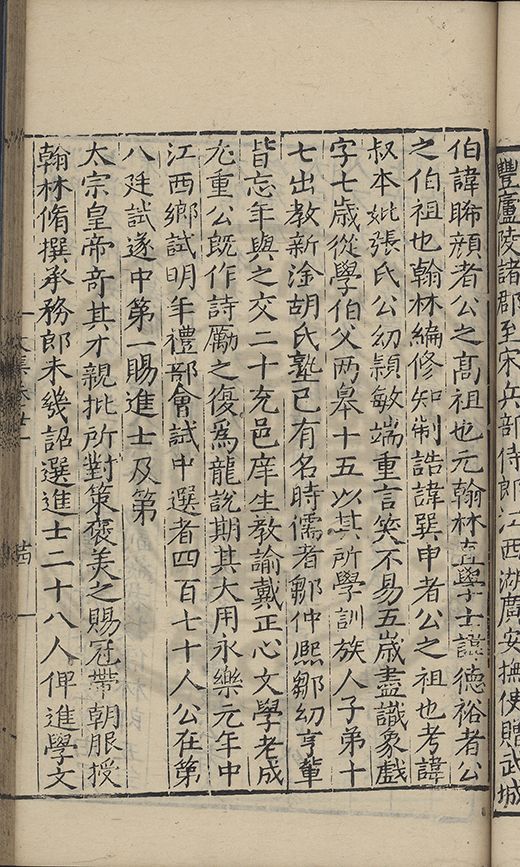 豐廬陵諸郡至宋兵部侍郎江西湖廣安撫使贈武城
伯諱晞顔者公之高祖也元翰林直學士諡德裕者公
之伯祖也翰林編修知制誥諱巽申者公之祖也考諱
叔本妣張氏公幼頴敏端重言笑不易五歲盡識象戲
字七歲從學伯父两皋十五以其所學訓族人子弟十
七出教新淦胡氏塾已有名時儒者鄒仲熈鄒幼亨輩
皆忘年與之交二十充邑庠生教諭戴正心文學老成
尤重公旣作詩勵之復爲龍說期其大用永樂元年中
江西鄉試明年禮部會試中選者四百七十人公在第
八廷試遂中第一賜進士及第
太宗皇帝奇其才親批所對策褒美之賜冠帶朝服授
翰林脩撰承務郎未幾詔選進士二十八人俾進學文